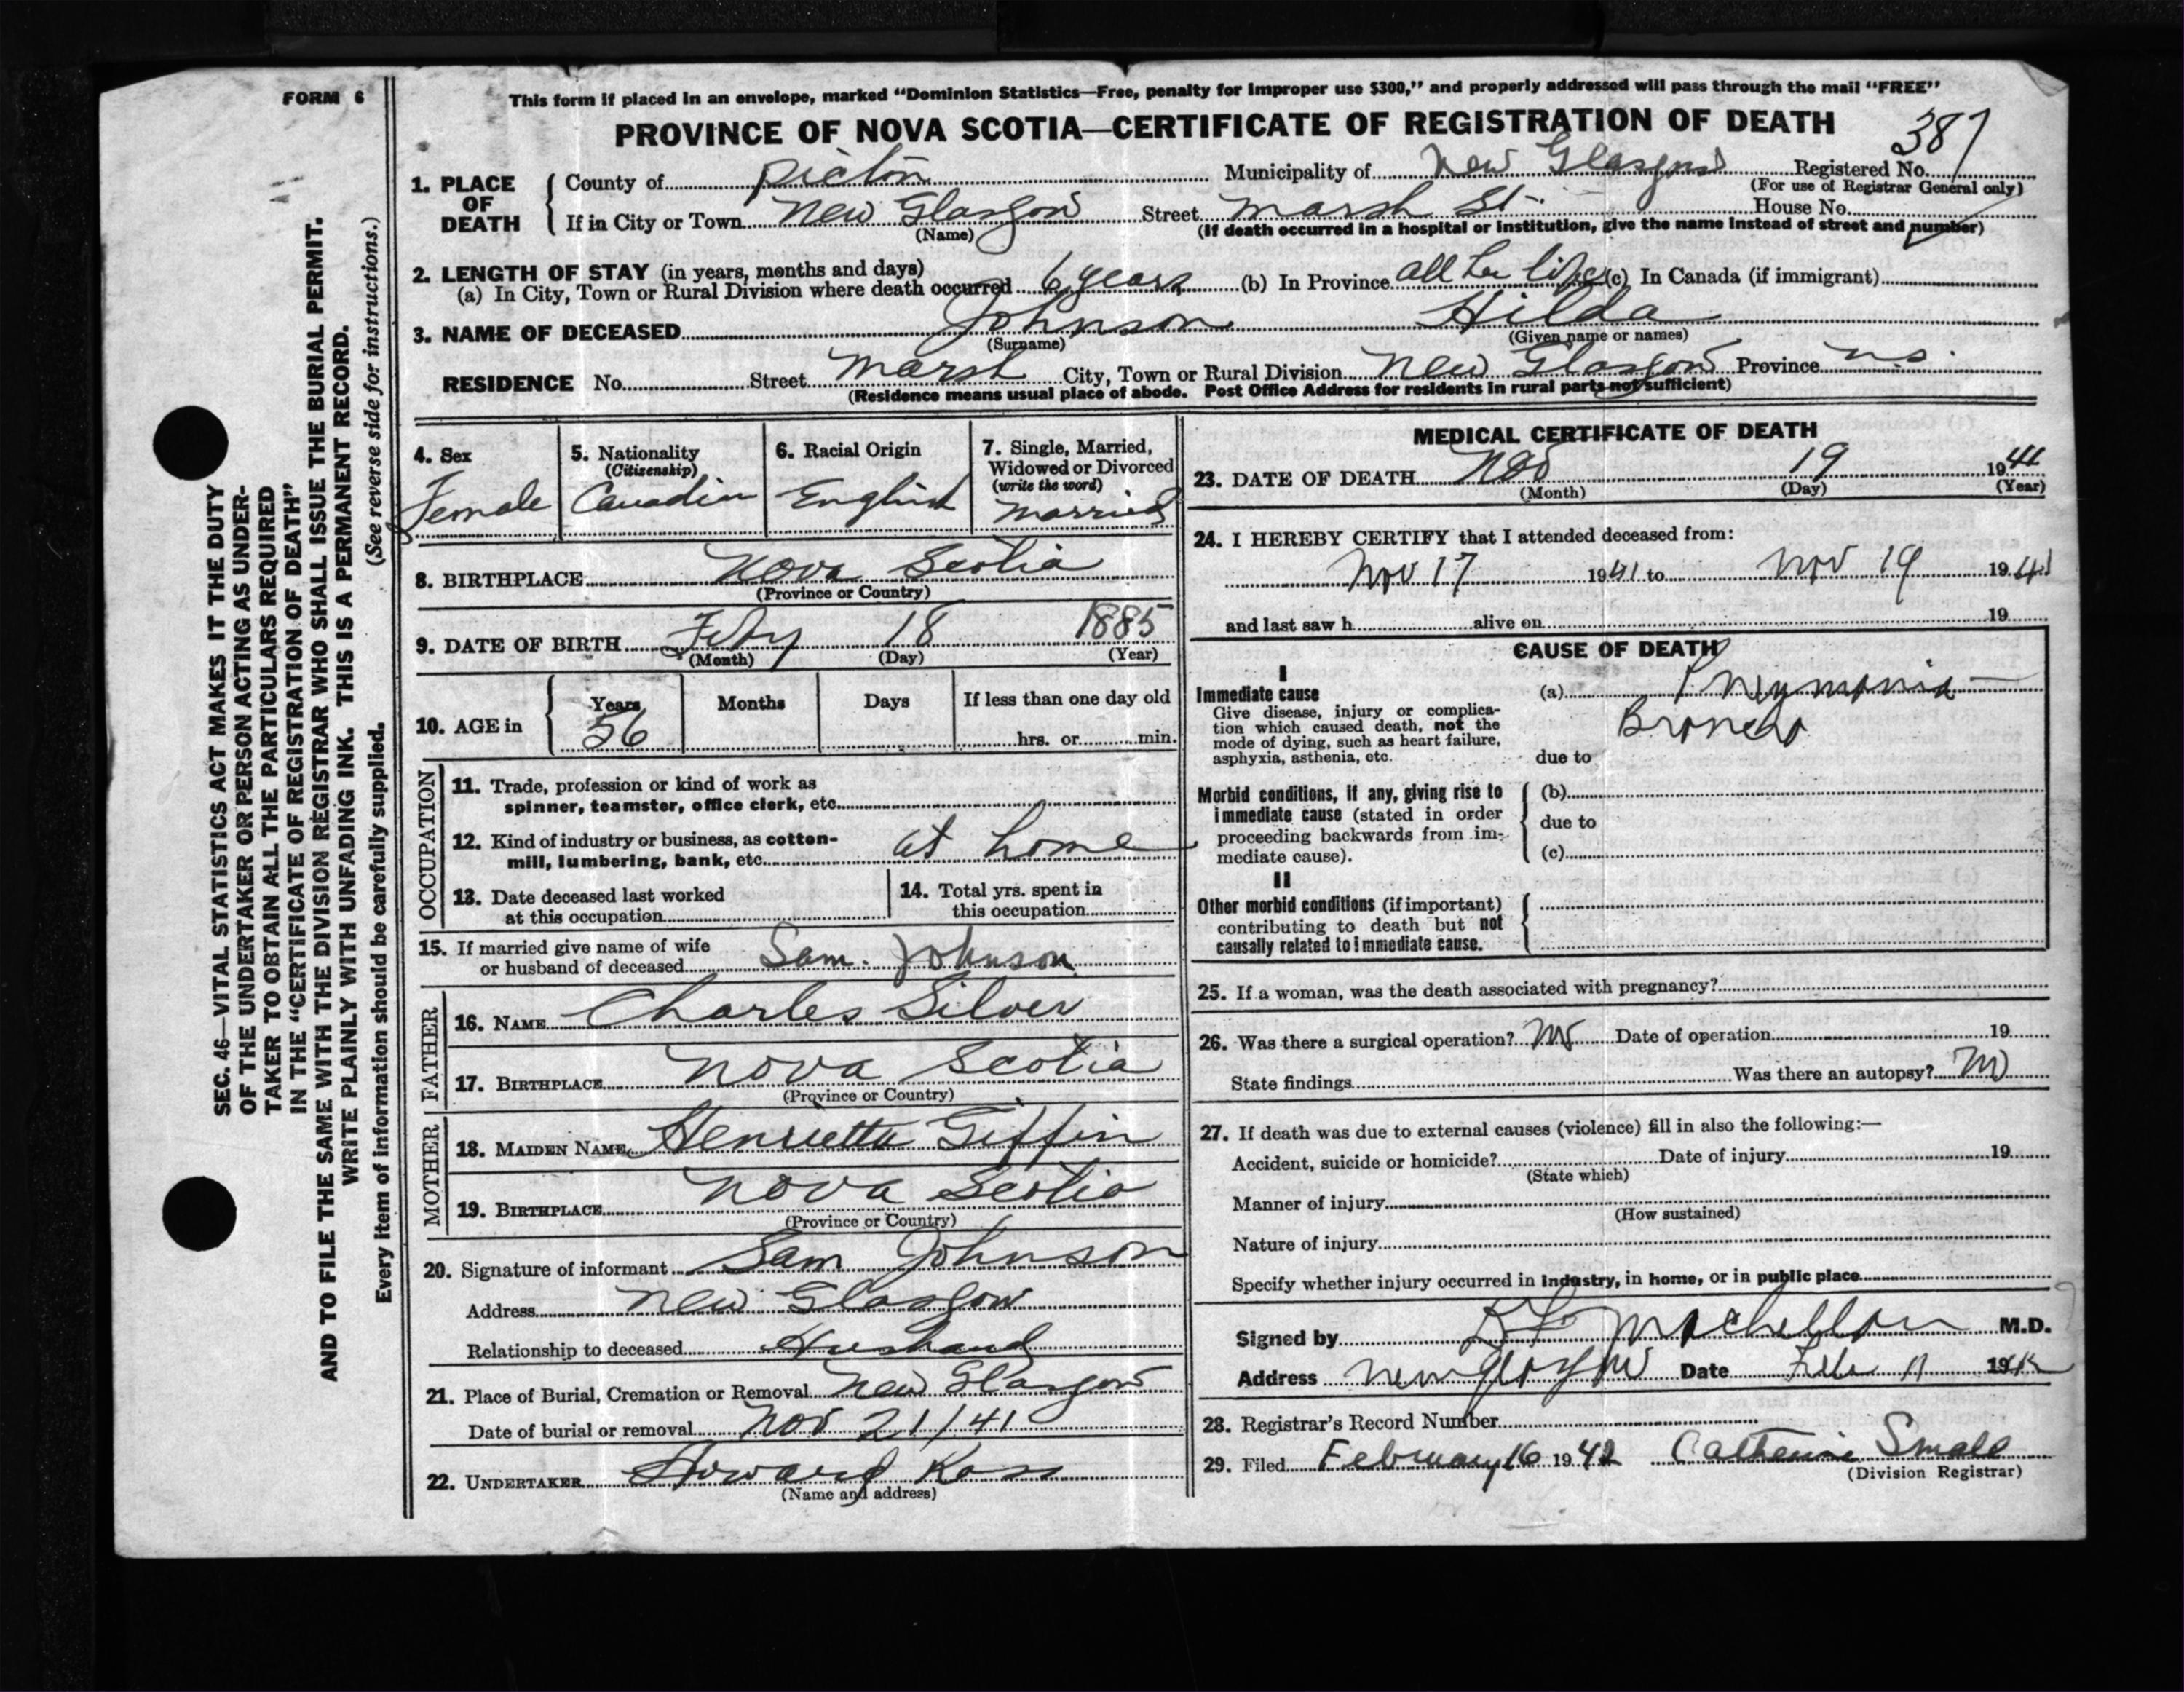 FORM 6
This form if placed in an envelope, marked "Dominion Statistics—Free, penalty for improper use $300," and properly addressed will pass through the mail "FREE"
PROVINCE OF NOVA SCOTIA—CERTIFICATE OF REGISTRATION OF DEATH
387
1. PLACE OF DEATH
County of Pictou Municipality of New Glasgow Registered No.
(For use of Registrar General only)
If in City or Town New Glasgow Street Marsh St. House No.
(Name) (If death occurred in a hospital or institution, give the name instead of street and number)
2. LENGTH OF STAY (in years, months and days)
(a) In City, Town or Rural Division where death occurred 6 years (b) In Province all her life (c) In Canada (if immigrant)
3. NAME OF DECEASED Johnson Hilda
(Surname) (Given name or names)
RESIDENCE No. Street Marsh City, Town or Rural Division New Glasgow Province N.S.
(Residence means usual place of abode. Post Office Address for residents in rural parts not sufficient)
4. Sex
Female
5. Nationality
(Citizenship)
Canadian
6. Racial Origin
English
7. Single, Married,
Widowed or Divorced
(write the word)
Married
8. BIRTHPLACE Nova Scotia
(Province or Country)
9. DATE OF BIRTH Feby 18 1885
(Month) (Day) (Year)
10. AGE in
Years Months Days If less than one day old
56 hrs. or min.
OCCUPATION
11. Trade, profession or kind of work as
spinner, teamster, office clerk, etc.
12. Kind of industry or business, as cotton-
mill, lumbering, bank, etc. at home
13. Date deceased last worked
at this occupation
14. Total yrs. spent in
this occupation
15. If married give name of wife
or husband of deceased Sam. Johnson
FATHER
16. NAME Charles Silver
17. BIRTHPLACE Nova Scotia
(Province or Country)
MOTHER
18. MAIDEN NAME Henrietta Giffin
19. BIRTHPLACE Nova Scotia
(Province or Country)
20. Signature of informant Sam Johnson
Address New Glasgow
Relationship to deceased Husband
21. Place of Burial, Cremation or Removal New Glasgow
Date of burial or removal Nov 21/41
22. UNDERTAKER Howard Ross
(Name and address)
MEDICAL CERTIFICATE OF DEATH
23. DATE OF DEATH Nov 19 1941
(Month) (Day) (Year)
24. I HEREBY CERTIFY that I attended deceased from:
Nov 17 1941 to Nov 19 1941
and last saw h alive on 19
CAUSE OF DEATH
I
Immediate cause
Give disease, injury or complica-
tion which caused death, not the
mode of dying, such as heart failure,
asphyxia, asthenia, etc.
(a) Pneumonia
Broncho
due to
Morbid conditions, if any, giving rise to
immediate cause (stated in order
proceeding backwards from im-
mediate cause).
(b)
due to
(c)
II
Other morbid conditions (if important)
contributing to death but not
causally related to immediate cause.
25. If a woman, was the death associated with pregnancy?
26. Was there a surgical operation? No Date of operation 19
State findings Was there an autopsy? No
27. If death was due to external causes (violence) fill in also the following:—
Accident, suicide or homicide? Date of injury 19
(State which)
Manner of injury
(How sustained)
Nature of injury
Specify whether injury occurred in industry, in home, or in public place
Signed by MacLellan M.D.
Address New Glasgow Date Feb 11 1942
28. Registrar's Record Number
29. Filed February 16 1942 Catherine Small
(Division Registrar)
SEC. 46—VITAL STATISTICS ACT MAKES IT THE DUTY
OF THE UNDERTAKER OR PERSON ACTING AS UNDER-
TAKER TO OBTAIN ALL THE PARTICULARS REQUIRED
IN THE "CERTIFICATE OF REGISTRATION OF DEATH"
AND TO FILE THE SAME WITH THE DIVISION REGISTRAR WHO SHALL ISSUE THE BURIAL PERMIT.
WRITE PLAINLY WITH UNFADING INK. THIS IS A PERMANENT RECORD.
Every item of information should be carefully supplied. (See reverse side for instructions.)